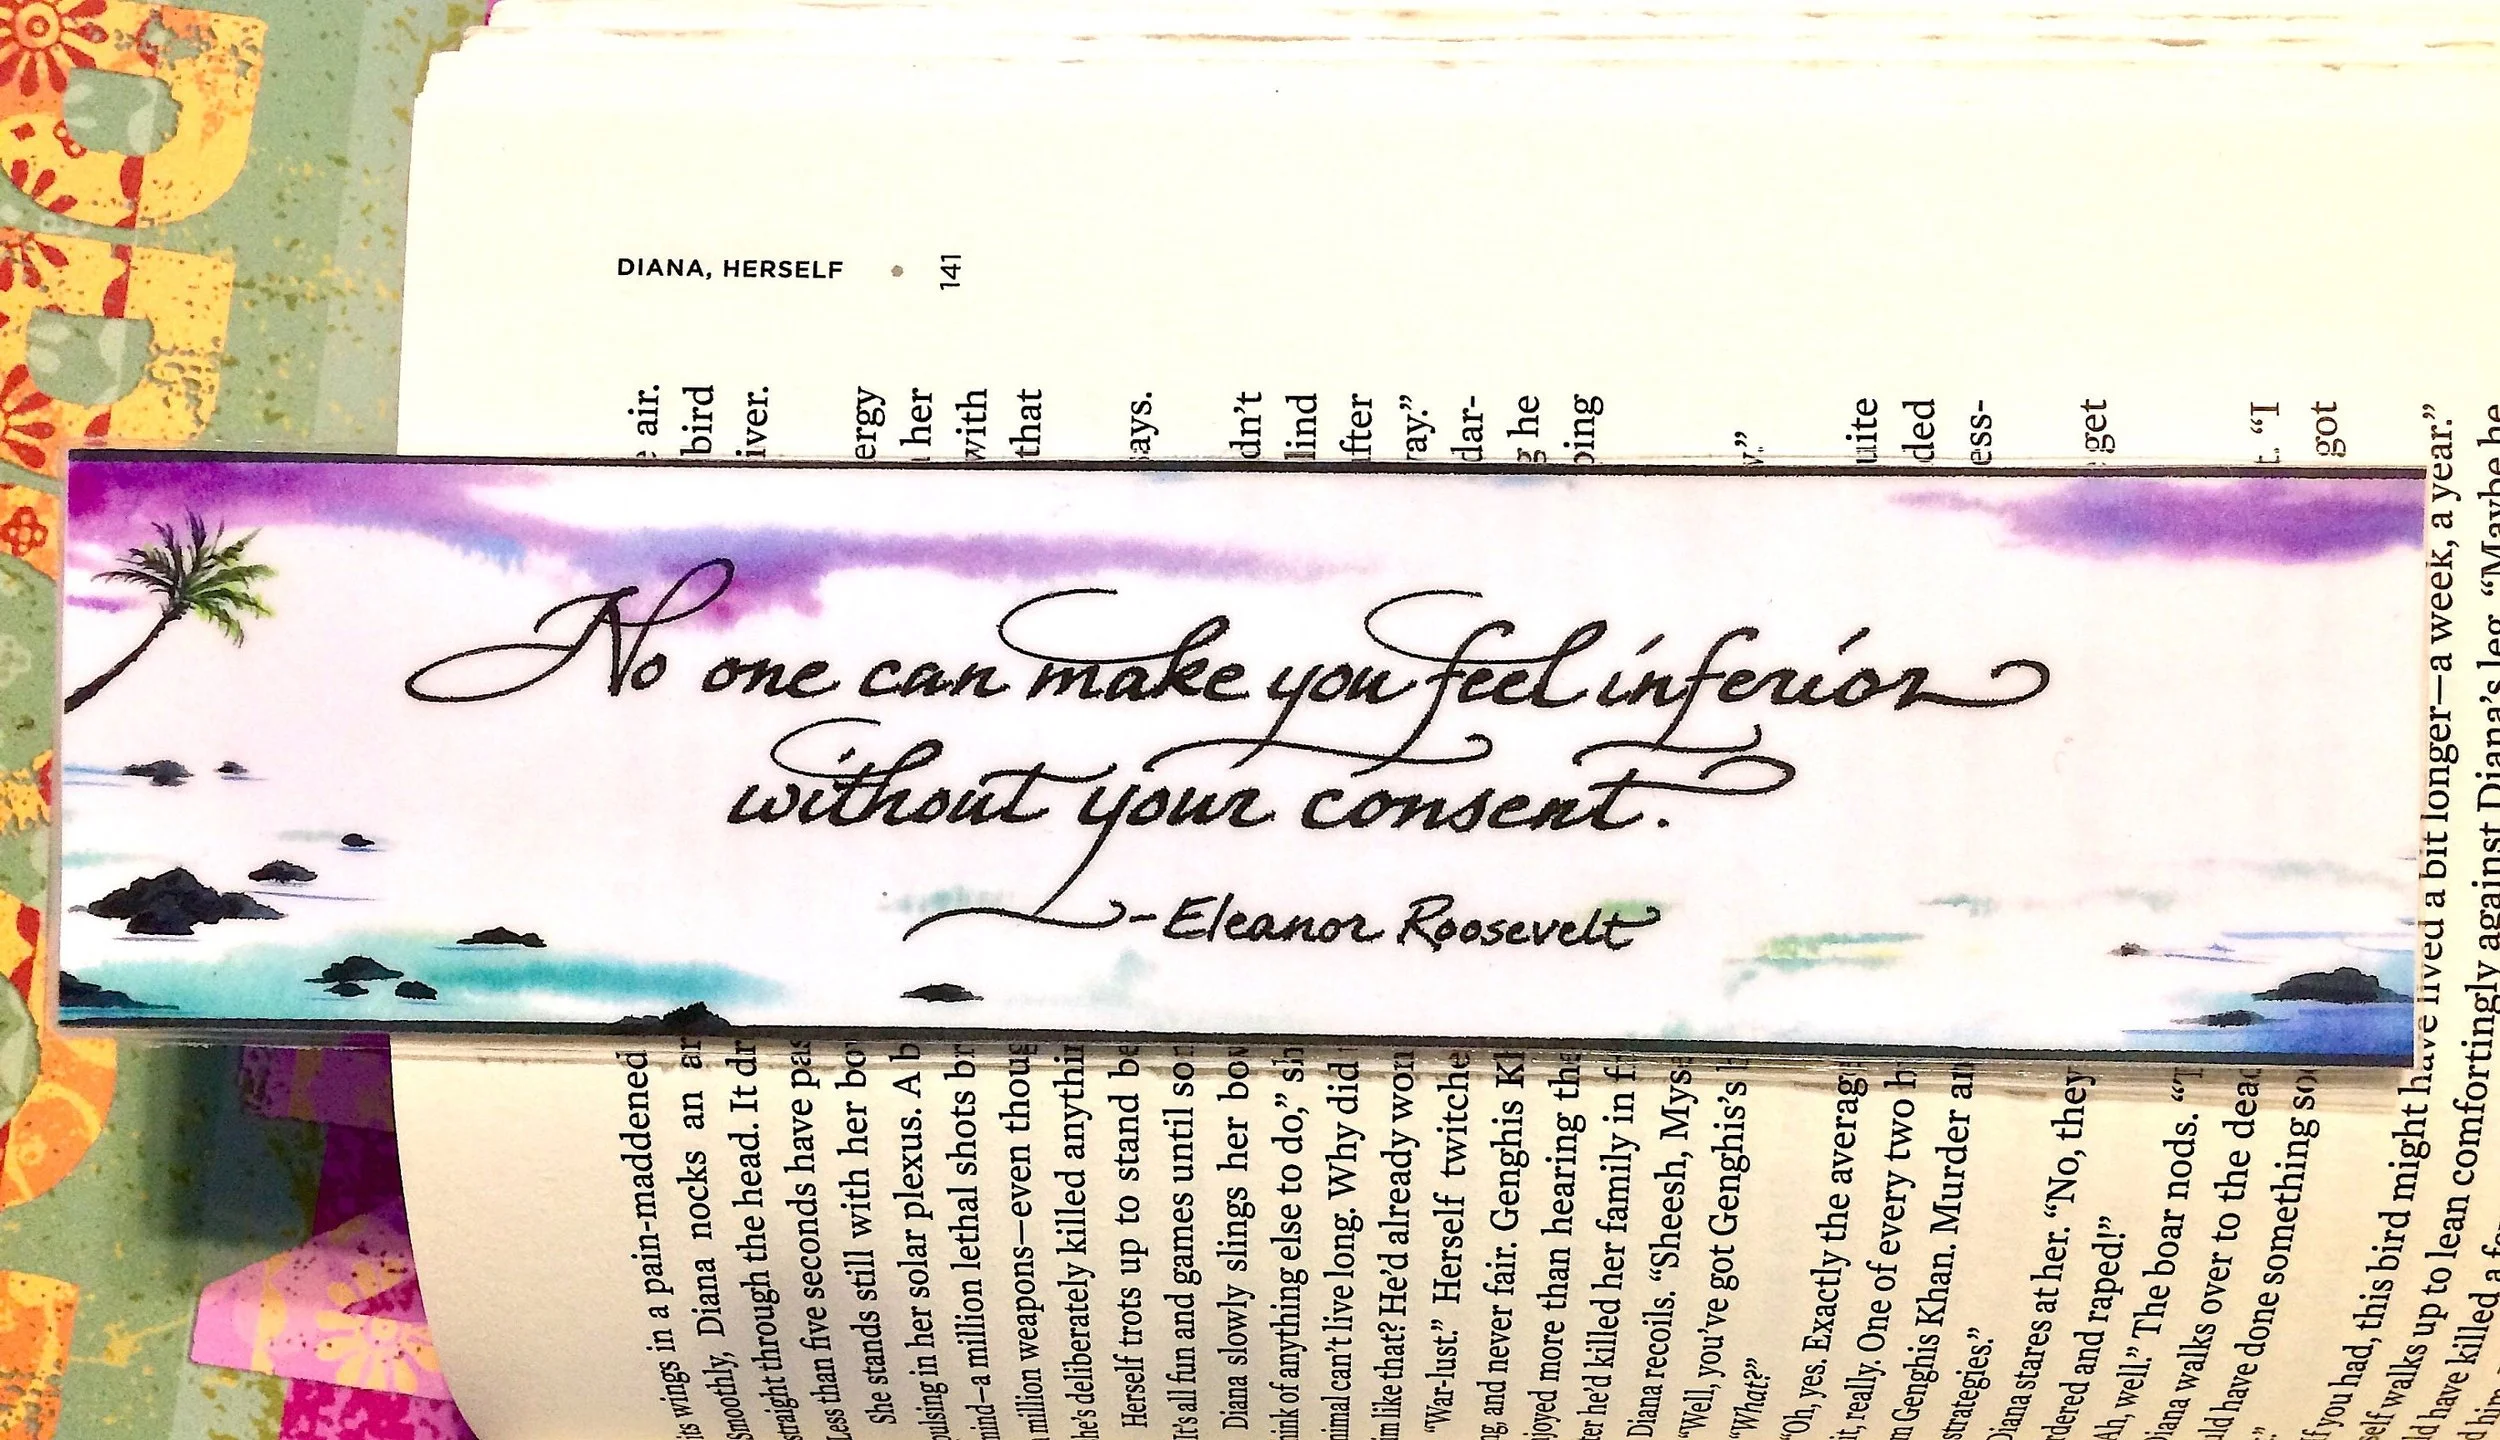 DIANA, HERSELF • 141
air.
bird
iver.
ergy
her
with
that
ays.
dn't
lind
fter
ray."
dar-
g he
ping
y."
uite
ded
ess-
get
t. "I
got
No one can make you feel inferior
without your consent.
-Eleanor Roosevelt
its wings in a pain-maddened
Smoothly, Diana nocks an ar
straight through the head. It dr
Less than five seconds have pas
She stands still with her bo
pulsing in her solar plexus. A b
mind—a million lethal shots br
million weapons—even thoug
he's deliberately killed anythin
Herself trots up to stand be
It's all fun and games until som
Diana slowly slings her bow
hink of anything else to do," sh
nimal can't live long. Why did
im like that? He'd already won
"War-lust." Herself twitche
ng, and never fair. Genghis Kh
joyed more than hearing the
ter he'd killed her family in f
Diana recoils. "Sheesh, Myse
"Well, you've got Genghis's
"What?"
"Oh, yes. Exactly the averag
it, really. One of every two h
m Genghis Khan. Murder an
strategies."
Diana stares at her. "No, they
rdered and raped!"
"Ah, well." The boar nods. "T
Diana walks over to the dead
uld have done something soo
If you had, this bird might have lived a bit longer—a week, a year."
self walks up to lean comfortingly against Diana's leg. "Maybe he
ld have killed a fe